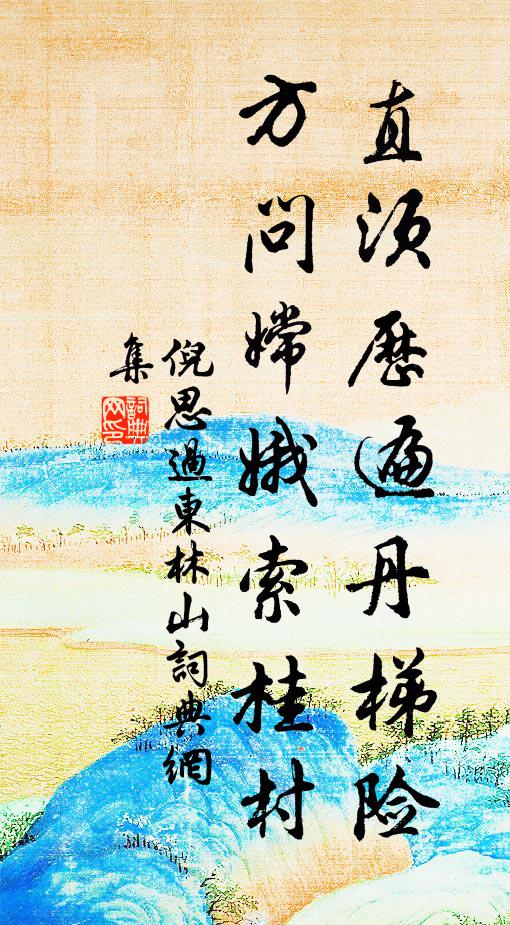 直须歷遍丹梯险
方问嫦娥索桂村
倪思過東林山詞典網
集
詞典網印